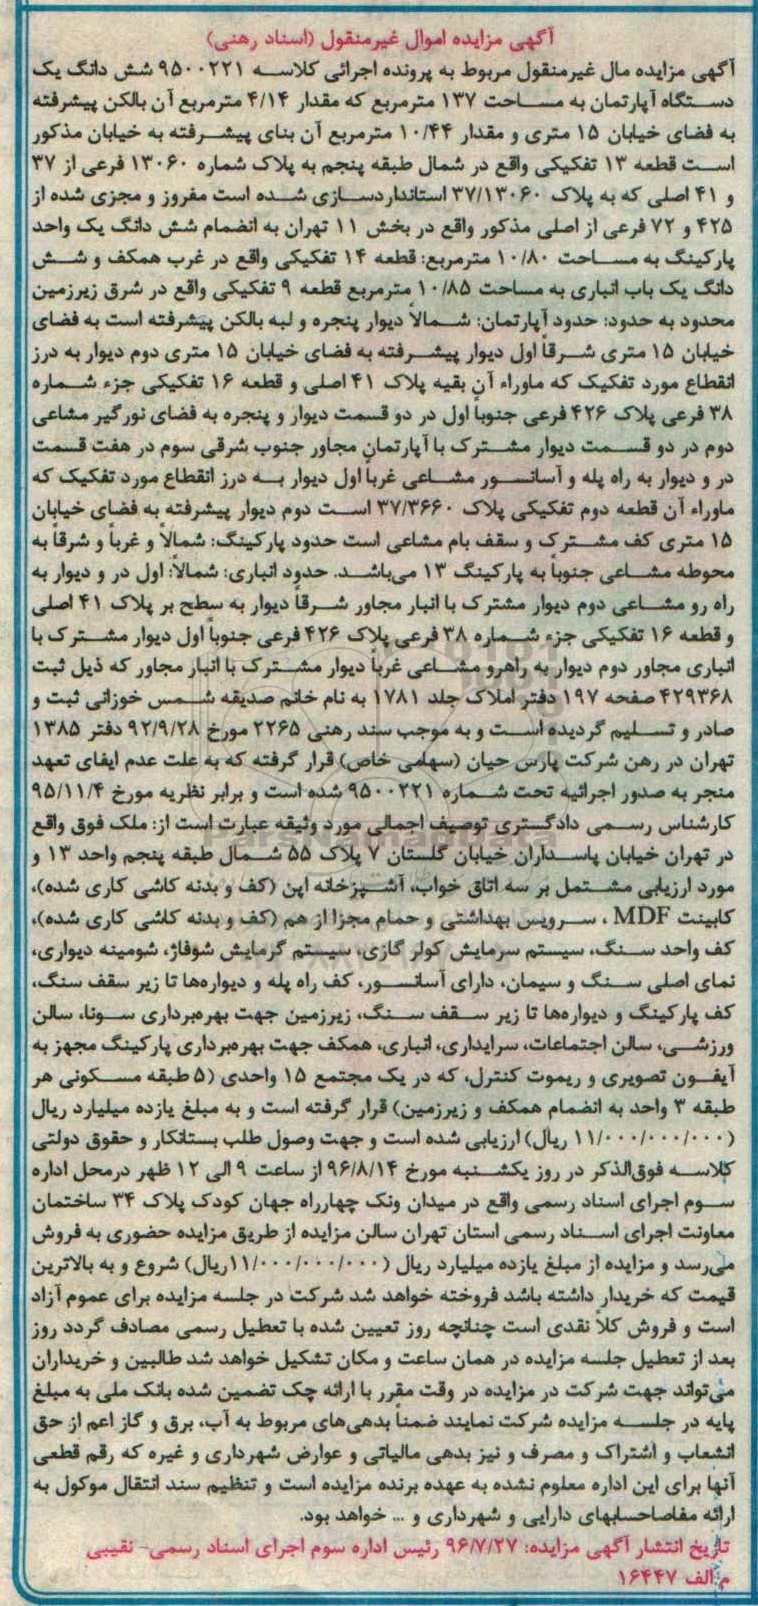 آگهی مزایده اموال غیرمنقول (اسناد رهنی)
آگهی مزایده مال غیرمنقول مربوط به پرونده اجرائی کلاسه ۹۵۰۰۲۲۱ شش دانگ یک
دستگاه آپارتمان به مساحت ۱۳۷ مترمربع که مقدار ۴/۱۴ مترمربع آن بالکن پیشرفته
به فضای خیابان ۱۵ متری و مقدار ۱۰/۴۴ مترمربع آن بنای پیشرفته به خیابان مذکور
است قطعه ۱۳ تفکیکی واقع در شمال طبقه پنجم به پلاک شماره ۱۳۰۶۰ فرعی از ۳۷
و ۴۱ اصلی که به پلاک ۳۷/۱۳۰۶۰ استانداردسازی شده است مفروز و مجزی شده از
۴۲۵ و ۷۲ فرعی از اصلی مذکور واقع در بخش ۱۱ تهران به انضمام شش دانگ یک واحد
پارکینگ به مساحت ۱۰/۸۰ مترمربع: قطعه ۱۴ تفکیکی واقع در غرب همکف و شش
دانگ یک باب انباری به مساحت ۱۰/۸۵ مترمربع قطعه ۹ تفکیکی واقع در شرق زیرزمین
محدود به حدود: حدود آپارتمان: شمالاً دیوار پنجره و لبه بالکن پیشرفته است به فضای
خیابان ۱۵ متری شرقاً اول دیوار پیشرفته به فضای خیابان ۱۵ متری دوم دیوار به درز
انقطاع مورد تفکیک که ماوراء آن بقیه پلاک ۴۱ اصلی و قطعه ۱۶ تفکیکی جزء شماره
۳۸ فرعی پلاک ۴۲۶ فرعی جنوباً اول در دو قسمت دیوار و پنجره به فضای نورگیر مشاعی
دوم در دو قسمت دیوار مشترک با آپارتمان مجاور جنوب شرقی سوم در هفت قسمت
در و دیوار به راه پله و آسانسور مشاعی غرباً اول دیوار به درز انقطاع مورد تفکیک که
ماوراء آن قطعه دوم تفکیکی پلاک ۳۷/۳۶۶۰ است دوم دیوار پیشرفته به فضای خیابان
۱۵ متری کف مشترک و سقف بام مشاعی است حدود پارکینگ: شمالاً و غرباً و شرقاً به
محوطه مشاعی جنوباً به پارکینگ ۱۳ می‌باشد. حدود انباری: شمالاً: اول در و دیوار به
راه رو مشاعی دوم دیوار مشترک با انبار مجاور شرقاً دیوار به سطح بر پلاک ۴۱ اصلی
و قطعه ۱۶ تفکیکی جزء شماره ۳۸ فرعی پلاک ۴۲۶ فرعی جنوباً اول دیوار مشترک با
انباری مجاور دوم دیوار به راهرو مشاعی غرباً دیوار مشترک با انبار مجاور که ذیل ثبت
۴۲۹۳۶۸ صفحه ۱۹۷ دفتر املاک جلد ۱۷۸۱ به نام خانم صدیقه شمس خوزانی ثبت و
صادر و تسلیم گردیده است و به موجب سند رهنی ۲۲۶۵ مورخ ۹۲/۹/۲۸ دفتر ۱۳۸۵
تهران در رهن شرکت پارس حیان (سهامی خاص) قرار گرفته که به علت عدم ایفای تعهد
منجر به صدور اجرائیه تحت شماره ۹۵۰۰۲۲۱ شده است و برابر نظریه مورخ ۹۵/۱۱/۴
کارشناس رسمی دادگستری توصیف اجمالی مورد وثیقه عبارت است از: ملک فوق واقع
در تهران خیابان پاسداران خیابان گلستان ۷ پلاک ۵۵ شمال طبقه پنجم واحد ۱۳ و
مورد ارزیابی مشتمل بر سه اتاق خواب، آشپزخانه اپن (کف و بدنه کاشی کاری شده)،
کابینت MDF ، سرویس بهداشتی و حمام مجزا از هم (کف و بدنه کاشی کاری شده)،
کف واحد سنگ، سیستم سرمایش کولر گازی، سیستم گرمایش شوفاژ، شومینه دیواری،
نمای اصلی سنگ و سیمان، دارای آسانسور، کف راه پله و دیواره‌ها تا زیر سقف سنگ،
کف پارکینگ و دیواره‌ها تا زیر سقف سنگ، زیرزمین جهت بهره‌برداری سونا، سالن
ورزشی، سالن اجتماعات، سرایداری، انباری، همکف جهت بهره‌برداری پارکینگ مجهز به
آیفون تصویری و ریموت کنترل، که در یک مجتمع ۱۵ واحدی (۵ طبقه مسکونی هر
طبقه ۳ واحد به انضمام همکف و زیرزمین) قرار گرفته است و به مبلغ یازده میلیارد ریال
(۱۱/۰۰۰/۰۰۰/۰۰۰ ریال) ارزیابی شده است و جهت وصول طلب بستانکار و حقوق دولتی
کلاسه فوق‌الذکر در روز یکشنبه مورخ ۹۶/۸/۱۴ از ساعت ۹ الی ۱۲ ظهر درمحل اداره
سوم اجرای اسناد رسمی واقع در میدان ونک چهارراه جهان کودک پلاک ۳۴ ساختمان
معاونت اجرای اسناد رسمی استان تهران سالن مزایده از طریق مزایده حضوری به فروش
می‌رسد و مزایده از مبلغ یازده میلیارد ریال (۱۱/۰۰۰/۰۰۰/۰۰۰ریال) شروع و به بالاترین
قیمت که خریدار داشته باشد فروخته خواهد شد شرکت در جلسه مزایده برای عموم آزاد
است و فروش کلاً نقدی است چنانچه روز تعیین شده با تعطیل رسمی مصادف گردد روز
بعد از تعطیل جلسه مزایده در همان ساعت و مکان تشکیل خواهد شد طالبین و خریداران
می‌تواند جهت شرکت در مزایده در وقت مقرر با ارائه چک تضمین شده بانک ملی به مبلغ
پایه در جلسه مزایده شرکت نمایند ضمناً بدهی‌های مربوط به آب، برق و گاز اعم از حق
انشعاب و اشتراک و مصرف و نیز بدهی مالیاتی و عوارض شهرداری و غیره که رقم قطعی
آنها برای این اداره معلوم نشده به عهده برنده مزایده است و تنظیم سند انتقال موکول به
ارائه مفاصاحسابهای دارایی و شهرداری و ... خواهد بود.
تاریخ انتشار آگهی مزایده: ۹۶/۷/۲۷ رئیس اداره سوم اجرای اسناد رسمی- نقیبی
م الف ۱۶۴۴۷